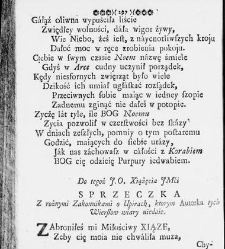 Gáłąź oliwna wypuściłá liście
Zwiędłey wolności, dáła wigor żywy,
Wie Niebo, żeś iest, z náycnotliwszych kroju
Dáłeć moc w ręce zrobienia pokoju.
Ciebie w swym czasie Noem názwę śmiele
Gdyś w Arce cudny uczynił porządek,
Kędy niesfornych związąć było wiele
Dzikość ich umiáł ugłáskać rozsądek,
Przeciwnych sobie máiąc w iedney stopie
Zadnemu zginąć nie dáłeś w potopie.
Zyczę lát tyle, ile BOG Noemu
Zycia pozwolił w czerstwości bez skázy
W dniách zeszłych, pomniy o tym postáremu
Godzić, máiących do siebie urázy,
Ják ius záchowasz w cáłości z Korabiem
BOG cię odzieię Purpury iedwabiem.
Do tegoż J.O. Xiążęcia JMći
SPRZECZKA
Z rożnymi Zakonnikami o Upirach, ktorym Autorka tych
Wierszow wiary niedaie.
Zábroniłeś mi Miłościwy XIĄŻE,
Zeby cię moia nie chwaliła muza,
Chy-